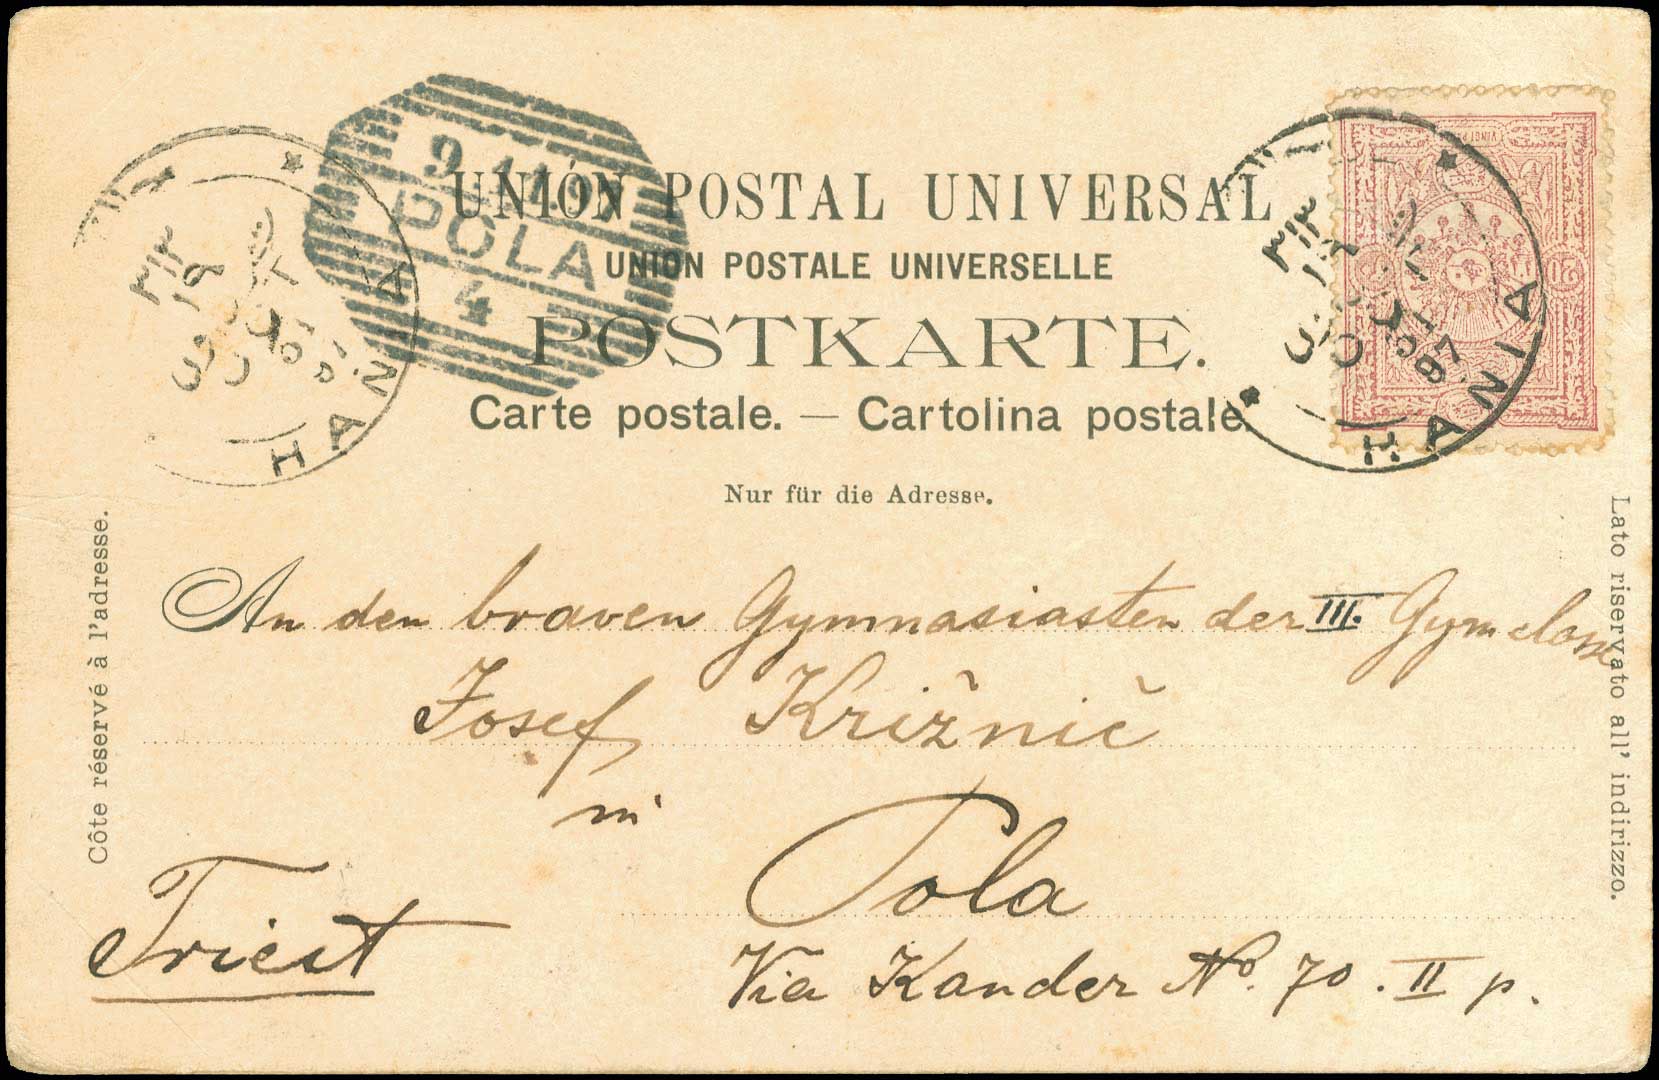 UNION POSTAL UNIVERSAL
UNION POSTALE UNIVERSELLE
POSTKARTE.
Carte postale. — Cartolina postale.
Nur für die Adresse.
POLA
4
HANIA
HANIA
97
Côte réservé à l'adresse.
Lato riservato all' indirizzo.
An den braven Gymnasiasten der III. Gym classe
Josef Križnič
in
Pola
Triest
Via Kander No. 70. II p.